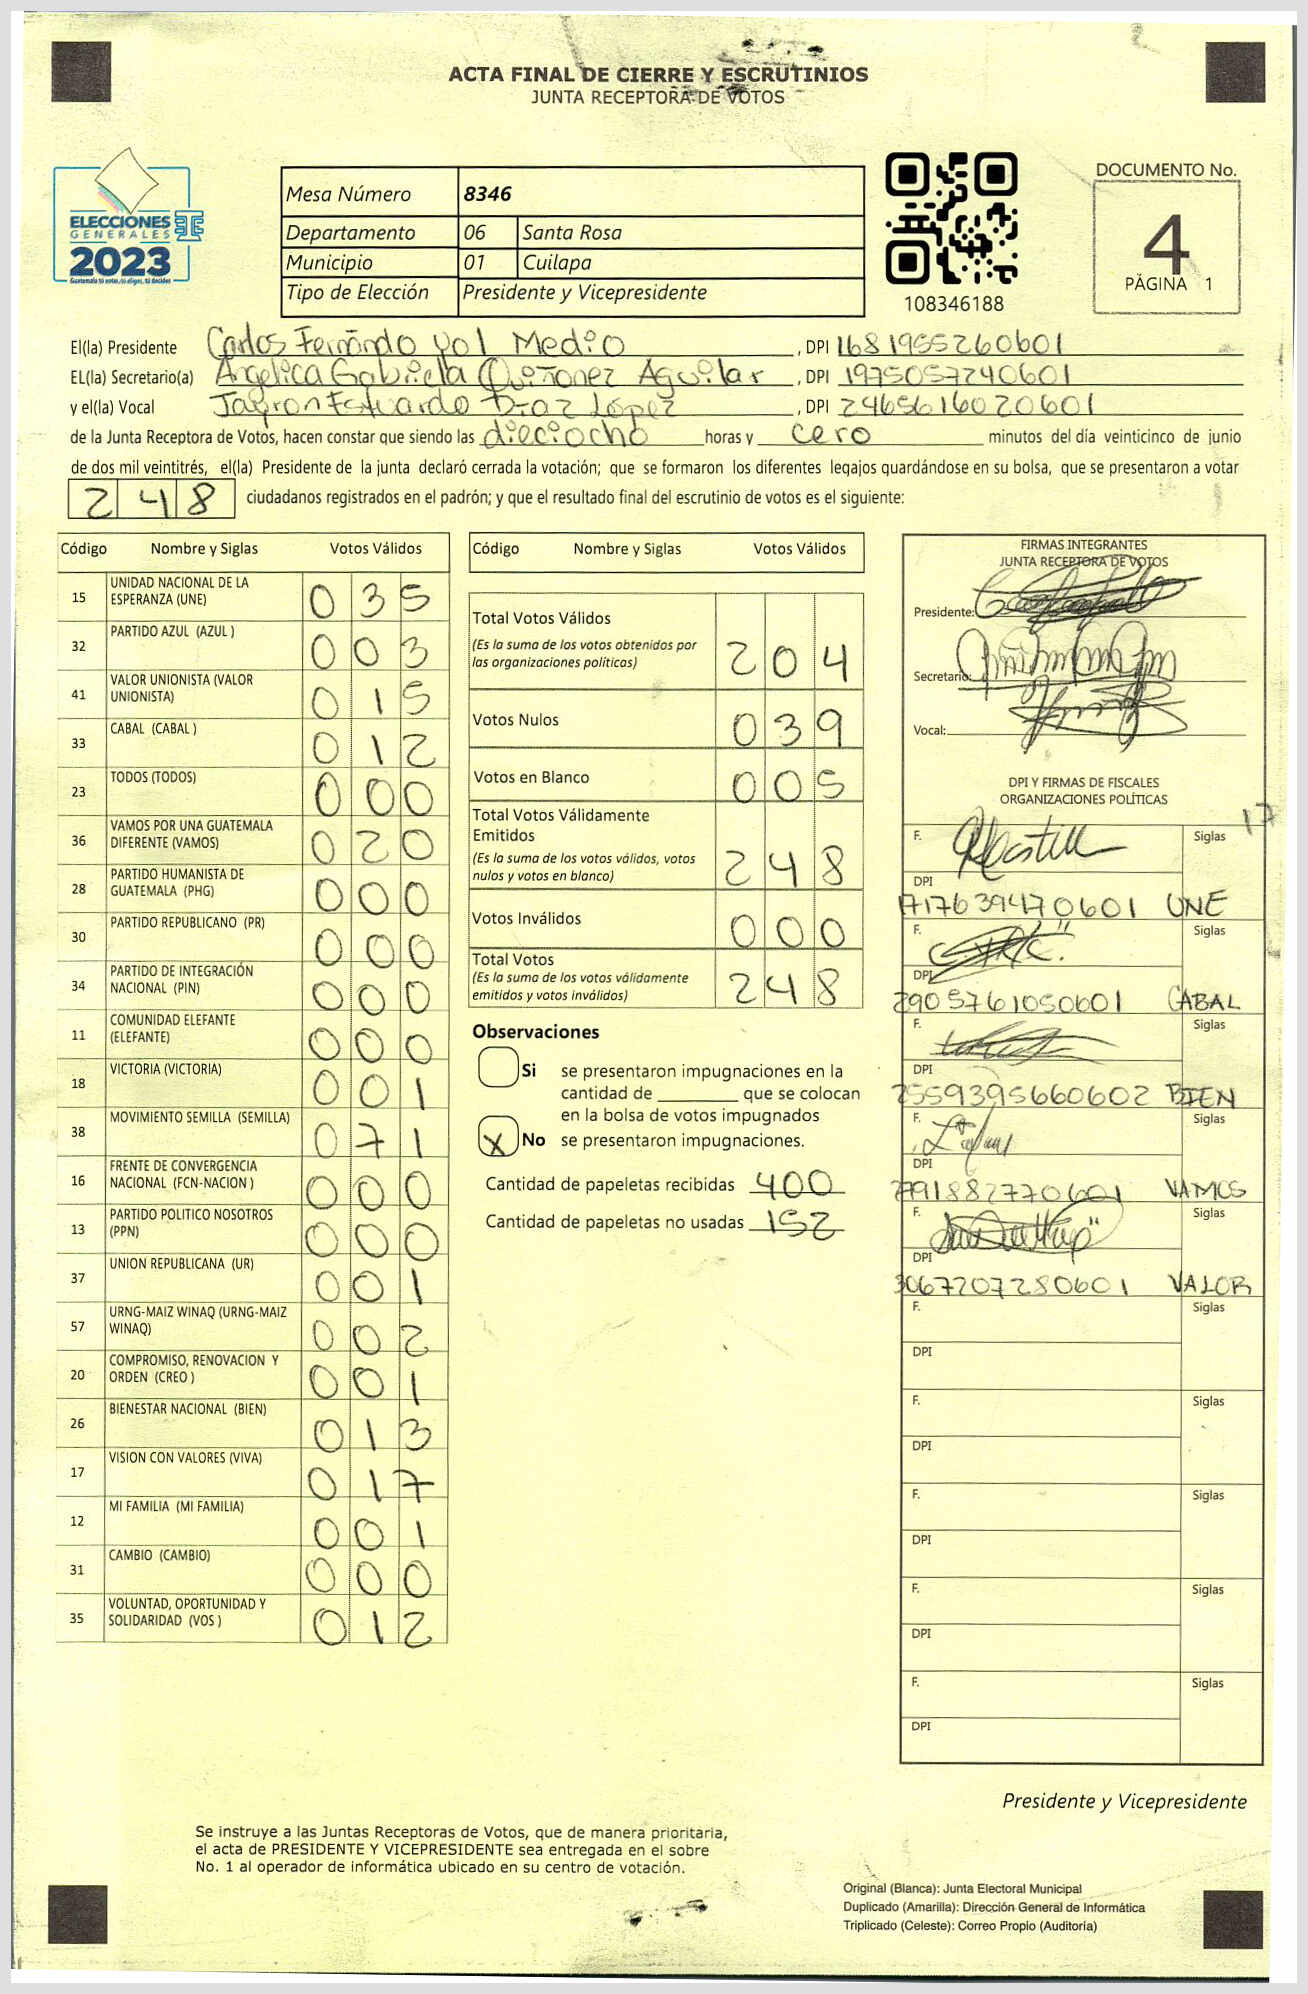 ACTA FINAL DE CIERRE Y ESCRUTINIOS
JUNTA RECEPTORA DE VOTOS
ELECCIONES
GENERALES
2023
Guatemala tú votas, tú eliges, tú decides
Mesa Número 8346
Departamento 06 Santa Rosa
Municipio 01 Cuilapa
Tipo de Elección Presidente y Vicepresidente
108346188
DOCUMENTO No.
4
PÁGINA 1
El(la) Presidente Carlos Fernando Yol Medio, DPI 1681955260601
EL(la) Secretario(a) Angelica Gabriela Quiñonez Aguilar, DPI 1975057240601
y el(la) Vocal Jayron Estuardo Diaz López, DPI 2465616020601
de la Junta Receptora de Votos, hacen constar que siendo las dieciocho horas y cero minutos del día veinticinco de junio
de dos mil veintitrés, el(la) Presidente de la junta declaró cerrada la votación; que se formaron los diferentes legajos guardándose en su bolsa, que se presentaron a votar
248 ciudadanos registrados en el padrón; y que el resultado final del escrutinio de votos es el siguiente:
Código Nombre y Siglas Votos Válidos
15 UNIDAD NACIONAL DE LA ESPERANZA (UNE) 035
32 PARTIDO AZUL (AZUL ) 003
41 VALOR UNIONISTA (VALOR UNIONISTA) 015
33 CABAL (CABAL ) 012
23 TODOS (TODOS) 000
36 VAMOS POR UNA GUATEMALA DIFERENTE (VAMOS) 020
28 PARTIDO HUMANISTA DE GUATEMALA (PHG) 000
30 PARTIDO REPUBLICANO (PR) 000
34 PARTIDO DE INTEGRACIÓN NACIONAL (PIN) 000
11 COMUNIDAD ELEFANTE (ELEFANTE) 000
18 VICTORIA (VICTORIA) 001
38 MOVIMIENTO SEMILLA (SEMILLA) 071
16 FRENTE DE CONVERGENCIA NACIONAL (FCN-NACION ) 000
13 PARTIDO POLITICO NOSOTROS (PPN) 000
37 UNION REPUBLICANA (UR) 001
57 URNG-MAIZ WINAQ (URNG-MAIZ WINAQ) 002
20 COMPROMISO, RENOVACION Y ORDEN (CREO ) 001
26 BIENESTAR NACIONAL (BIEN) 013
17 VISION CON VALORES (VIVA) 017
12 MI FAMILIA (MI FAMILIA) 001
31 CAMBIO (CAMBIO) 000
35 VOLUNTAD, OPORTUNIDAD Y SOLIDARIDAD (VOS ) 012
Código Nombre y Siglas Votos Válidos
Total Votos Válidos 204
(Es la suma de los votos obtenidos por
las organizaciones políticas)
Votos Nulos 039
Votos en Blanco 005
Total Votos Válidamente
Emitidos 248
(Es la suma de los votos válidos, votos
nulos y votos en blanco)
Votos Inválidos 000
Total Votos 248
(Es la suma de los votos válidamente
emitidos y votos inválidos)
Observaciones
Si se presentaron impugnaciones en la
cantidad de ________ que se colocan
en la bolsa de votos impugnados
X No se presentaron impugnaciones.
Cantidad de papeletas recibidas 400
Cantidad de papeletas no usadas 152
FIRMAS INTEGRANTES
JUNTA RECEPTORA DE VOTOS
Presidente:
Secretario:
Vocal:
DPI Y FIRMAS DE FISCALES
ORGANIZACIONES POLÍTICAS
17
F. Siglas
DPI
1717639470601 UNE
F. Siglas
DPI
2905761050601 CABAL
F. Siglas
DPI
2559395660602 BIEN
F. Siglas
DPI
2791882770601 VAMOS
F. Siglas
DPI
3067207280601 VALOR
F. Siglas
DPI
F. Siglas
DPI
F. Siglas
DPI
F. Siglas
DPI
F. Siglas
DPI
Presidente y Vicepresidente
Se instruye a las Juntas Receptoras de Votos, que de manera prioritaria,
el acta de PRESIDENTE Y VICEPRESIDENTE sea entregada en el sobre
No. 1 al operador de informática ubicado en su centro de votación.
Original (Blanca): Junta Electoral Municipal
Duplicado (Amarilla): Dirección General de Informática
Triplicado (Celeste): Correo Propio (Auditoría)